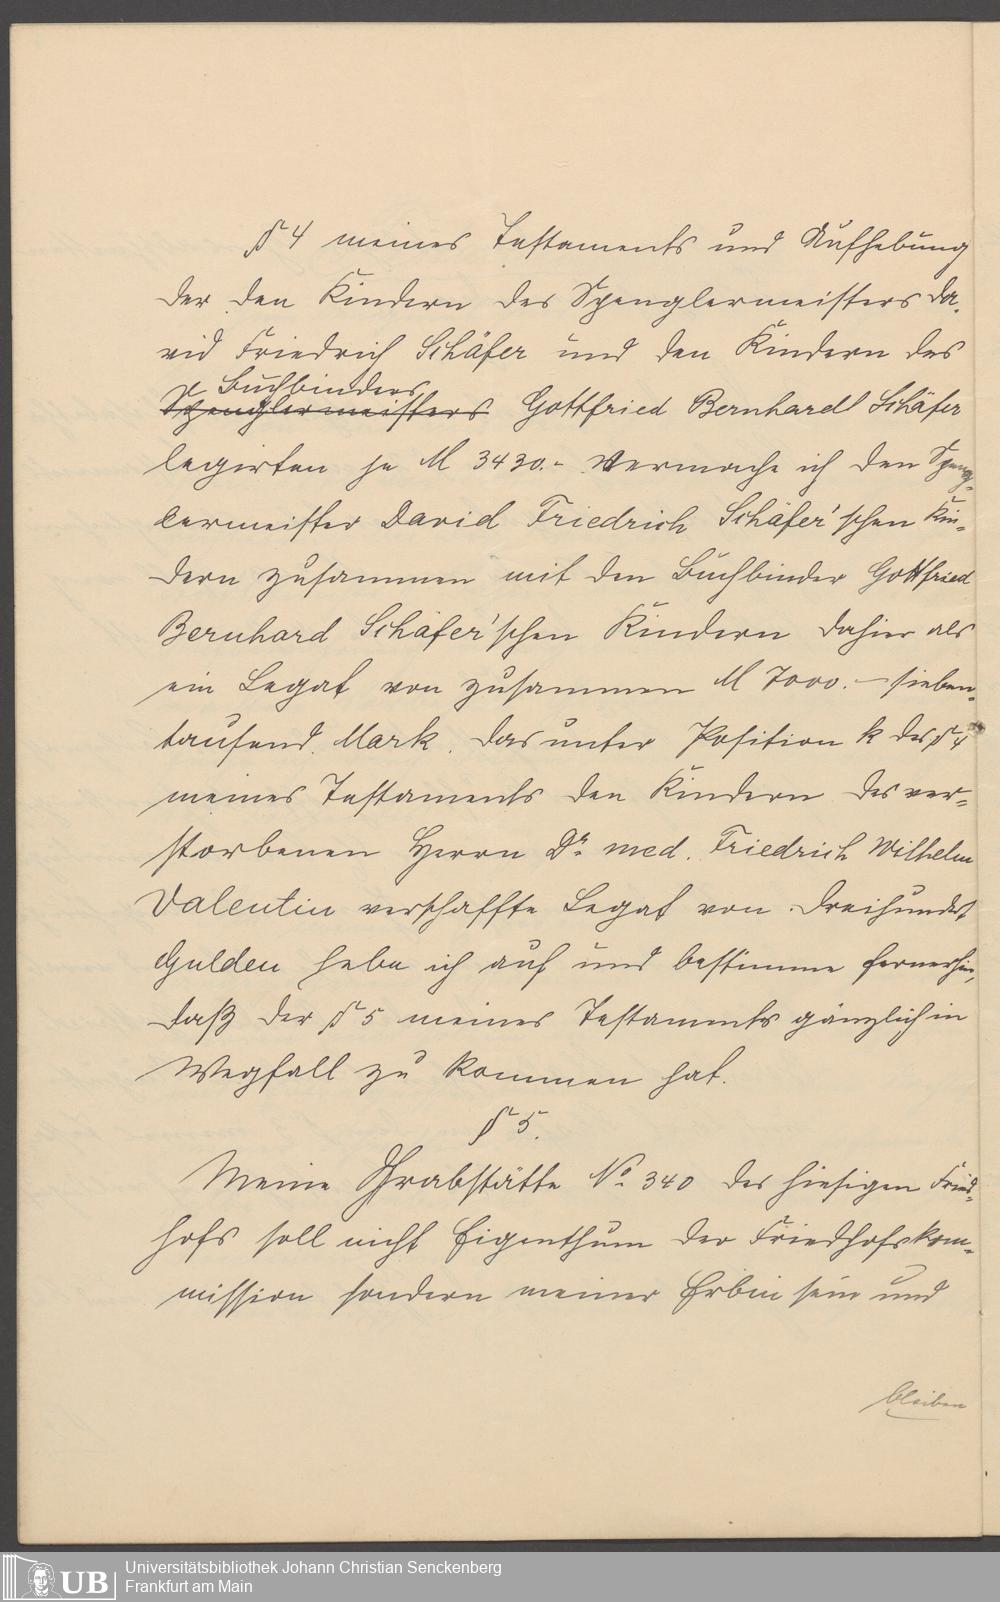 § 4 meines Testaments und Aufhebung
der den Kindern des Spenglermeisters Da-
vid Friedrich Schäfer und den Kindern des
Buchbinders
Spenglermeisters Gottfried Bernhardt Schäfer
legirten je M 3430.- vermache ich den Speng-
lermeister David Friedrich Schäfer'schen Kin-
dern zusammen mit den Buchbinder Gottfried
Bernhard Schäfer'schen Kindern dahier als
ein Legat von zusammen M 7000.- sieben-
tausend Mark. Das unter Position k des § 4
meines Testaments den Kindern des ver-
storbenen Herrn Dr. med. Friedrich Wilhelm
Valentin verschaffte Legat von dreihundert
Gulden hebe ich auf und bestimme fernerhin,
daß der § 5 meines Testaments gänzlich in
Wegfall zu kommen hat.
§ 5.
Meine Grabstätte No. 340 des hiesigen Fried-
hofs soll nicht Eigenthum der Friedhofskom-
mission sondern meiner Erbin sein und
bleiben
UB Universitätsbibliothek Johann Christian Senckenberg
Frankfurt am Main